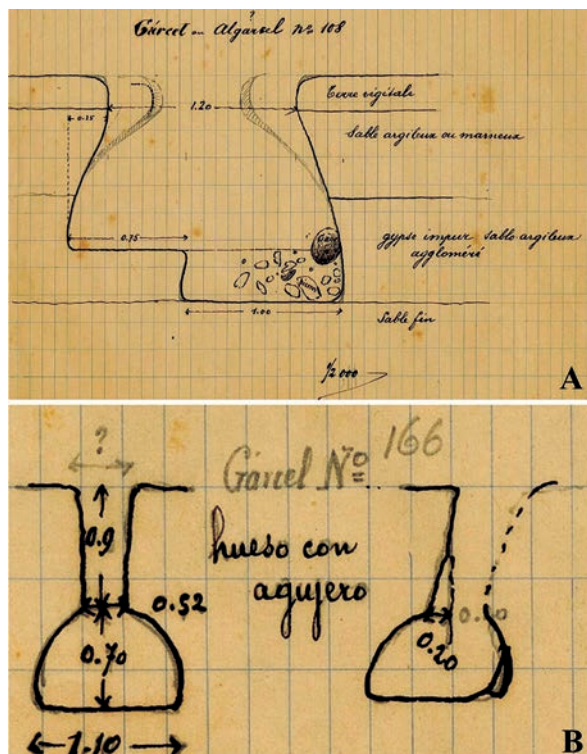 ?
Gárcel ou Algarcel nº 108
terre vigitale
1.20
0.15
Sable argileux ou marneux
0.75
gypse impur sablo argileux
aggloméré
1.00
Sable fin
A
?
Gárcel Nº 166
0.9
hueso con
agujero
0.52
0.20
0.70
1.10
B